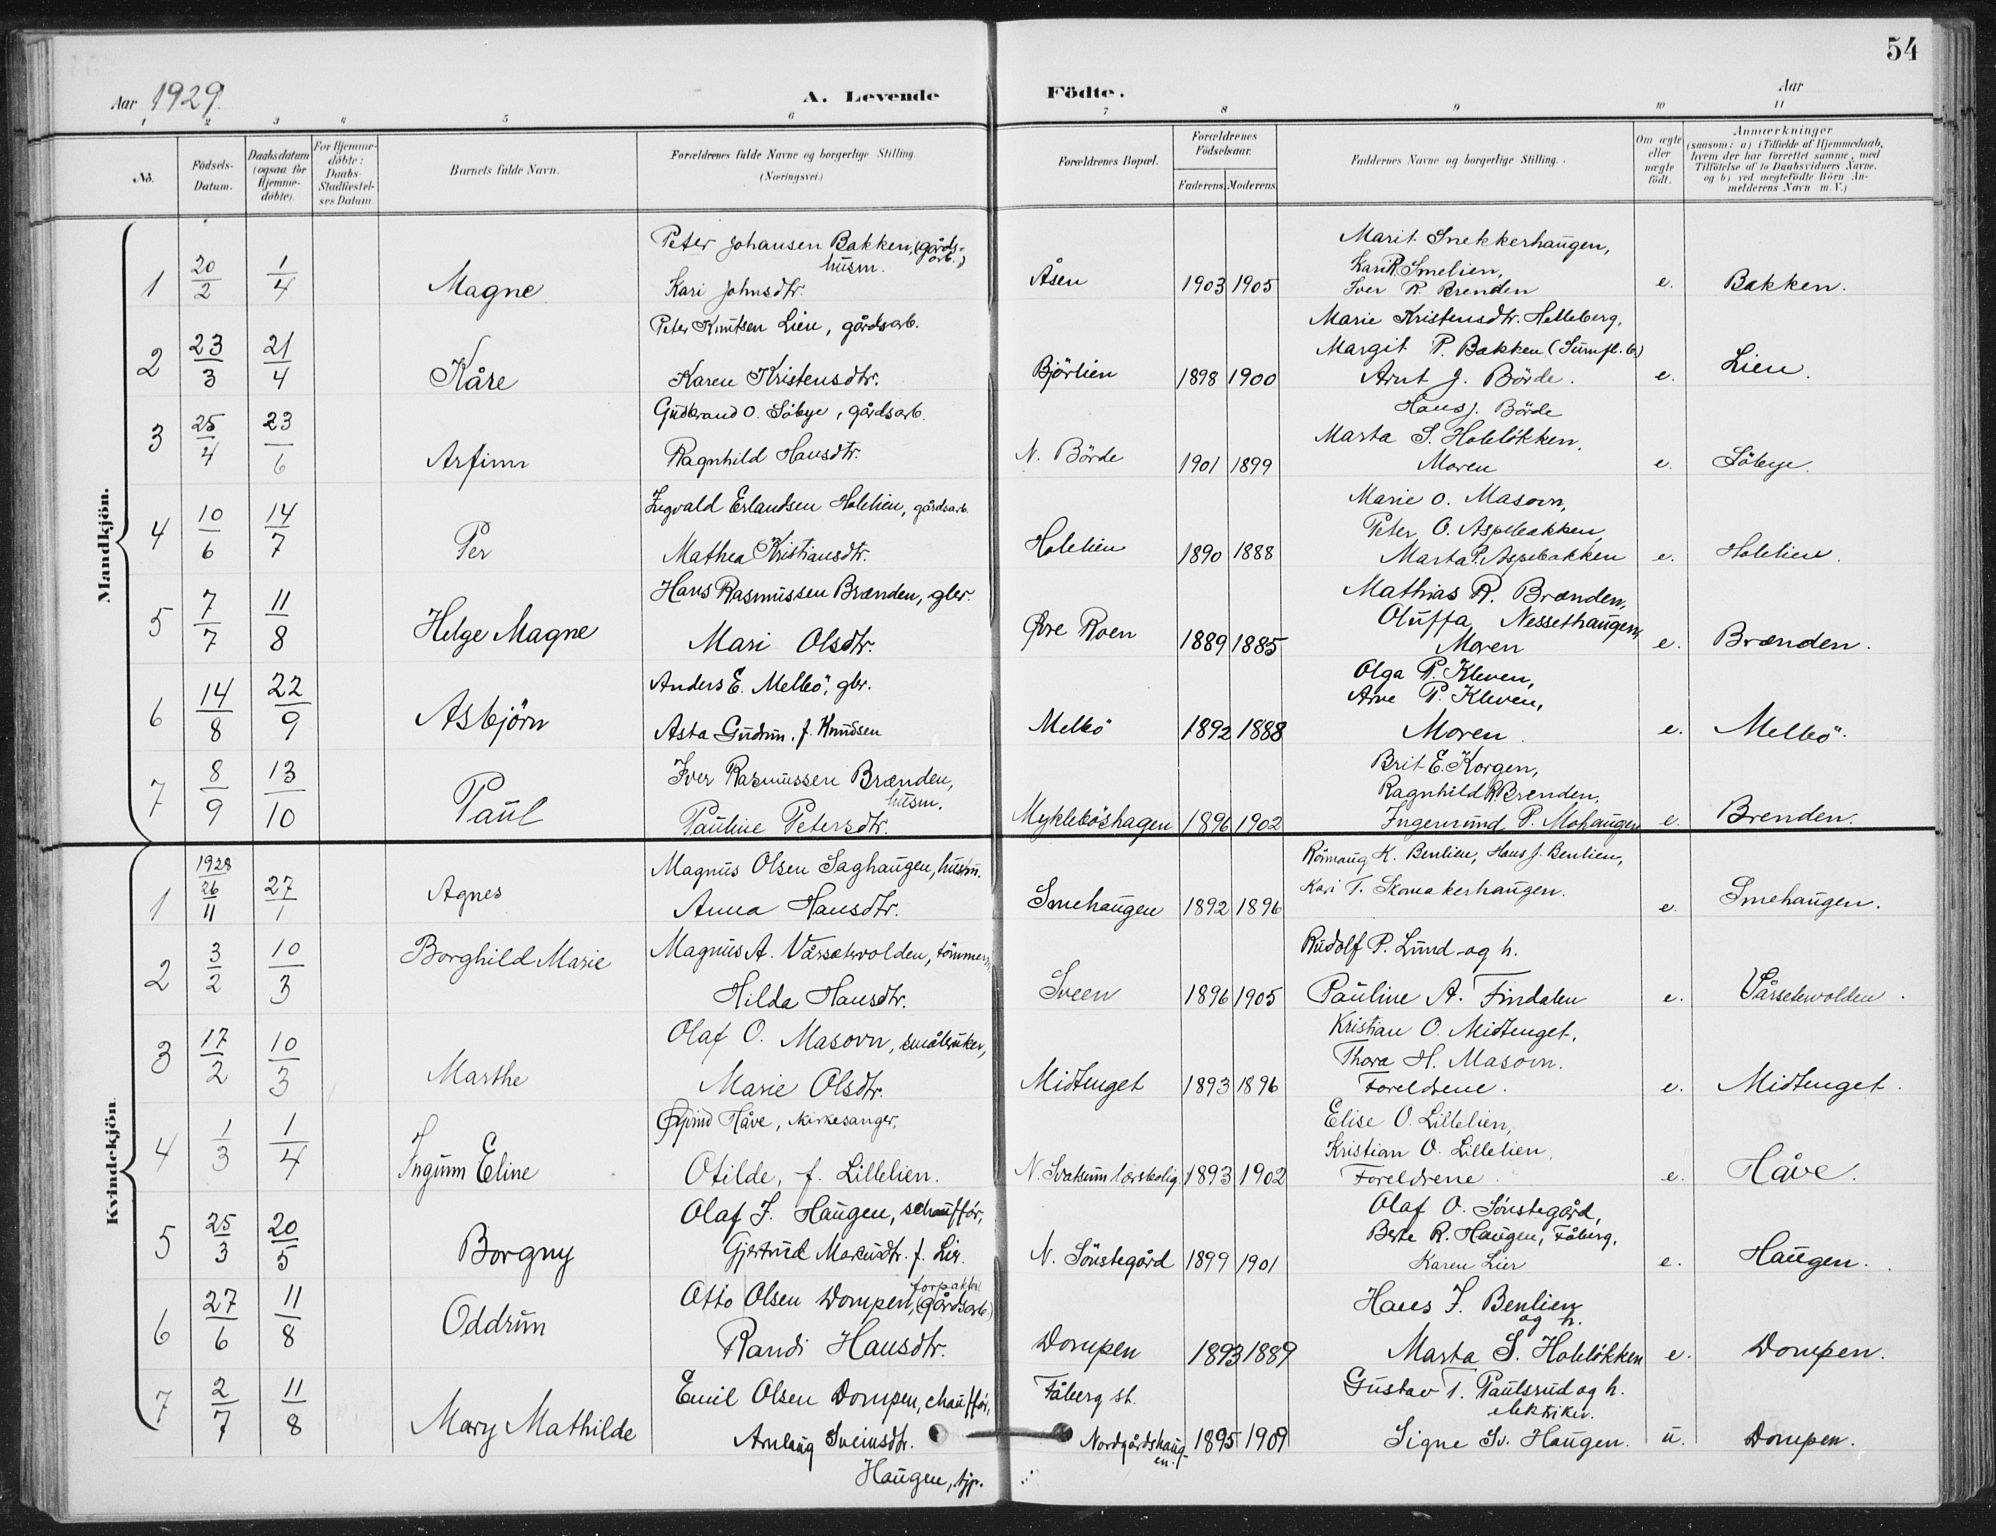 54
Aar 1929. A. Levende Födte. Aar
1 2 3 4 5 6 7 8 9 10 11
No. Födsels-Datum. Daabsdatum (ogsaa for Hjemme-döbte). For Hjemme-döbte: Daabs-Stadfæstel-ses Datum. Barnets fulde Navn. Forældrenes fulde Navne og borgerlige Stilling. (Næringsvei.) Forældrenes Bopæl. Forældrenes Födselsaar. Faderens. Moderens. Faddernes Navne og borgerlige Stilling. Om ægte eller uægte födt. Anmærkninger (saasom: a) i Tilfælde af Hjemmedaab, hvem der har forrettet samme, med Tilföielse af to Daabsvidners Navne. og b) ved uægtefödte Börn An-melderens Navn m. V.)
Mandkjön.
Peter Johansen Bakken, (gårds-arb.) husm. Marit Snekkerhaugen,
Kari R Smelien,
1 20/2 1/4 Magne Kari Johnsdtr. Åsen 1903 1905 Iver R. Brenden e. Bakken.
Peter Knutsen Lien, gårdsarb. Marie Kristensdtr. Helleberg,
Margit P. Bakken
2 23/3 21/4 Kåre Karen Kristensdtr. Björlien 1898 1900 Arnt J. Börde. e. Lien.
Gudbrand O. Söbye, gårdsarb. Hans J. Börde
Marta S. Holelökken,
3 25/4 23/6 Arfinn Ragnhild Hansdtr. N. Börde 1901 1899 Moren e. Söbye.
Ingvald Erlandsen Holelien, gårdsarb. Marie O. Masovn,
Peter O. Aspebakken,
4 10/6 14/7 Per Mathea Kristiansdtr. Holelien 1890 1888 Marta P. Aspebakken e. Holelien.
Hans Rasmussen Brænden, gbr. Mathias R. Brænden,
Oluffa Nessethaugen,
5 7/7 11/8 Helge Magne Mari Olsdtr. Øvre Roen 1889 1885 Moren e. Brænden.
Anders E. Melbö, gbr. Olga P. Kleven,
Arne P. Kleven,
6 14/8 22/9 Asbjörn Asta Gudrun. f. Knudsen Melbö 1892 1888 Moren. e. Melbö.
Iver Rasmussen Brænden, husm. Brit E. Korgen,
Ragnhild R. Brenden,
7 8/9 13/10 Paul Pauline Petersdtr. Mykleböshagen 1896 1902 Ingemund P. Mohaugen e. Brenden.
Kvindekjön
Magnus Olsen Saghaugen, husm. Römaug K. Benlien, Hans J. Benlien,
Kari T. Skomakerhaugen.
1 1928 26/11 27/1 Agnes Anna Hansdtr. Smehaugen 1892 1896 e. Smehaugen.
Magnus A. Vårsetervolden, tömmerm. Rudolf P. Lund og h.
2 3/2 10/3 Borghild Marie Hilda Hansdtr. Sveen 1896 1905 Pauline A. Findalen e. Vårsetervolden.
Olaf O. Masovn, småbruker, Kristian O. Midtenget,
Thora H. Masovn.
3 17/2 10/3 Marthe Marie Olsdtr. Midtenget 1893 1896 Foreldrene. e. Midtenget.
Øyvind Håve, kirkesanger, Elise O. Lillelien,
Kristian O. Lillelien,
4 1/3 1/4 Ingunn Eline Otilde, f. Lillelien. N. Svatsum lærerbolig. 1893 1902 Foreldrene. e. Håve.
Olaf J. Haugen, schaufför, Olaf O. Sönstegård,
Berte R. Haugen, Fåberg,
5 25/3 20/5 Borgny Gjertrud Marcusdtr. f. Lier. N. Sönstegård 1899 1901 Karen Lier e. Haugen.
Otto Olsen Dompen, forpakter (gårdsarb.) Hans J. Benlien og h.
6 27/6 11/8 Oddrun Randi Hansdtr. Dompen 1893 1889 Marta S. Holelökken e. Dompen.
Emil Olsen Dompen, chaufför, Fåberg st. Gustav T. Paulsrud og h. elektriker.
7 2/7 11/8 Mary Mathilde Arnlaug Sveinsdtr. Nordgårdshaug-en. 1895 1909 Signe Sv. Haugen. u. Dompen.
Haugen, tjp.